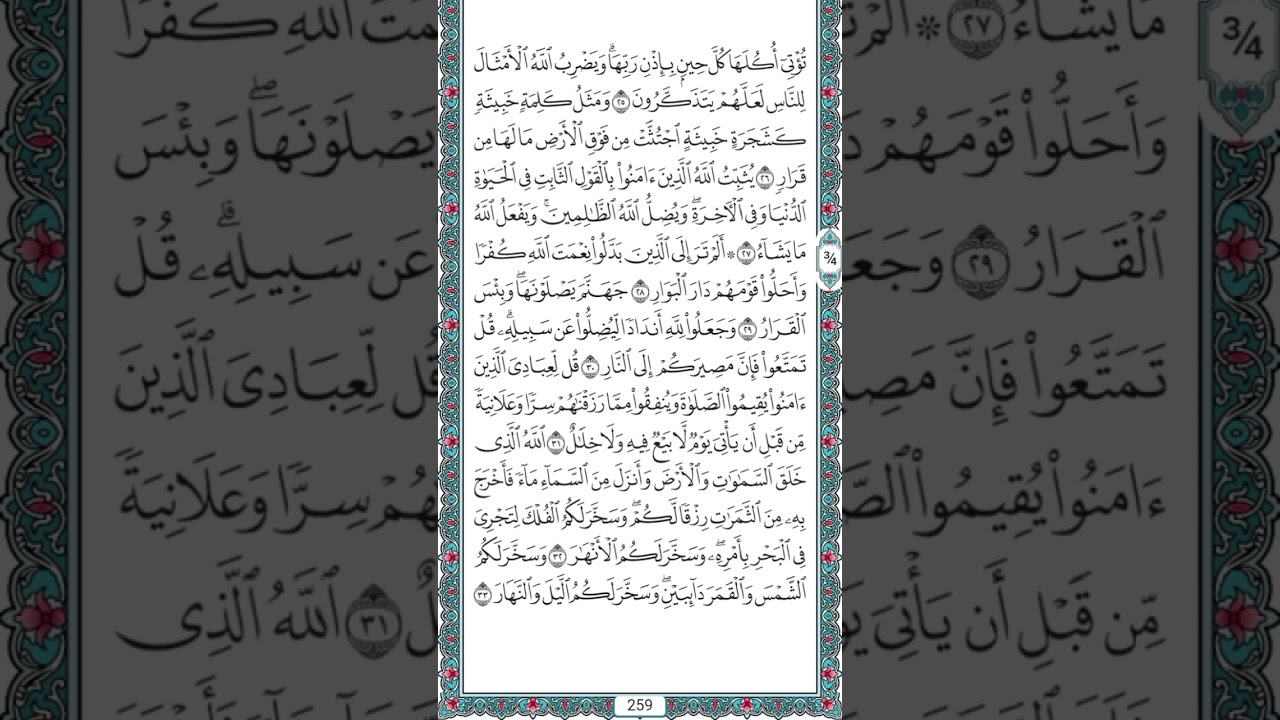 تُؤْتِىٓ أُكُلَهَا كُلَّ حِينٍۭ بِإِذْنِ رَبِّهَاۗ وَيَضْرِبُ ٱللَّهُ ٱلْأَمْثَالَ
لِلنَّاسِ لَعَلَّهُمْ يَتَذَكَّرُونَ ٢٥ وَمَثَلُ كَلِمَةٍ خَبِيثَةٍ
كَشَجَرَةٍ خَبِيثَةٍ ٱجْتُثَّتْ مِن فَوْقِ ٱلْأَرْضِ مَا لَهَا مِن
قَرَارٍ ٢٦ يُثَبِّتُ ٱللَّهُ ٱلَّذِينَ ءَامَنُوا۟ بِٱلْقَوْلِ ٱلثَّابِتِ فِى ٱلْحَيَوٰةِ
ٱلدُّنْيَا وَفِى ٱلْـَٔاخِرَةِۖ وَيُضِلُّ ٱللَّهُ ٱلظَّـٰلِمِينَۚ وَيَفْعَلُ ٱللَّهُ
مَا يَشَآءُ ٢٧ ۞ أَلَمْ تَرَ إِلَى ٱلَّذِينَ بَدَّلُوا۟ نِعْمَتَ ٱللَّهِ كُفْرًا
وَأَحَلُّوا۟ قَوْمَهُمْ دَارَ ٱلْبَوَارِ ٢٨ جَهَنَّمَ يَصْلَوْنَهَاۖ وَبِئْسَ
ٱلْقَرَارُ ٢٩ وَجَعَلُوا۟ لِلَّهِ أَندَادًا لِّيُضِلُّوا۟ عَن سَبِيلِهِۦۗ قُلْ
تَمَتَّعُوا۟ فَإِنَّ مَصِيرَكُمْ إِلَى ٱلنَّارِ ٣٠ قُل لِّعِبَادِىَ ٱلَّذِينَ
ءَامَنُوا۟ يُقِيمُوا۟ ٱلصَّلَوٰةَ وَيُنفِقُوا۟ مِمَّا رَزَقْنَـٰهُمْ سِرًّا وَعَلَانِيَةً
مِّن قَبْلِ أَن يَأْتِىَ يَوْمٌ لَّا بَيْعٌ فِيهِ وَلَا خِلَـٰلٌ ٣١ ٱللَّهُ ٱلَّذِى
خَلَقَ ٱلسَّمَـٰوَٰتِ وَٱلْأَرْضَ وَأَنزَلَ مِنَ ٱلسَّمَآءِ مَآءً فَأَخْرَجَ
بِهِۦ مِنَ ٱلثَّمَرَٰتِ رِزْقًا لَّكُمْۖ وَسَخَّرَ لَكُمُ ٱلْفُلْكَ لِتَجْرِىَ
فِى ٱلْبَحْرِ بِأَمْرِهِۦۖ وَسَخَّرَ لَكُمُ ٱلْأَنْهَـٰرَ ٣٢ وَسَخَّرَ لَكُمُ
ٱلشَّمْسَ وَٱلْقَمَرَ دَآئِبَيْنِۖ وَسَخَّرَ لَكُمُ ٱلَّيْلَ وَٱلنَّهَارَ ٣٣
¾
259